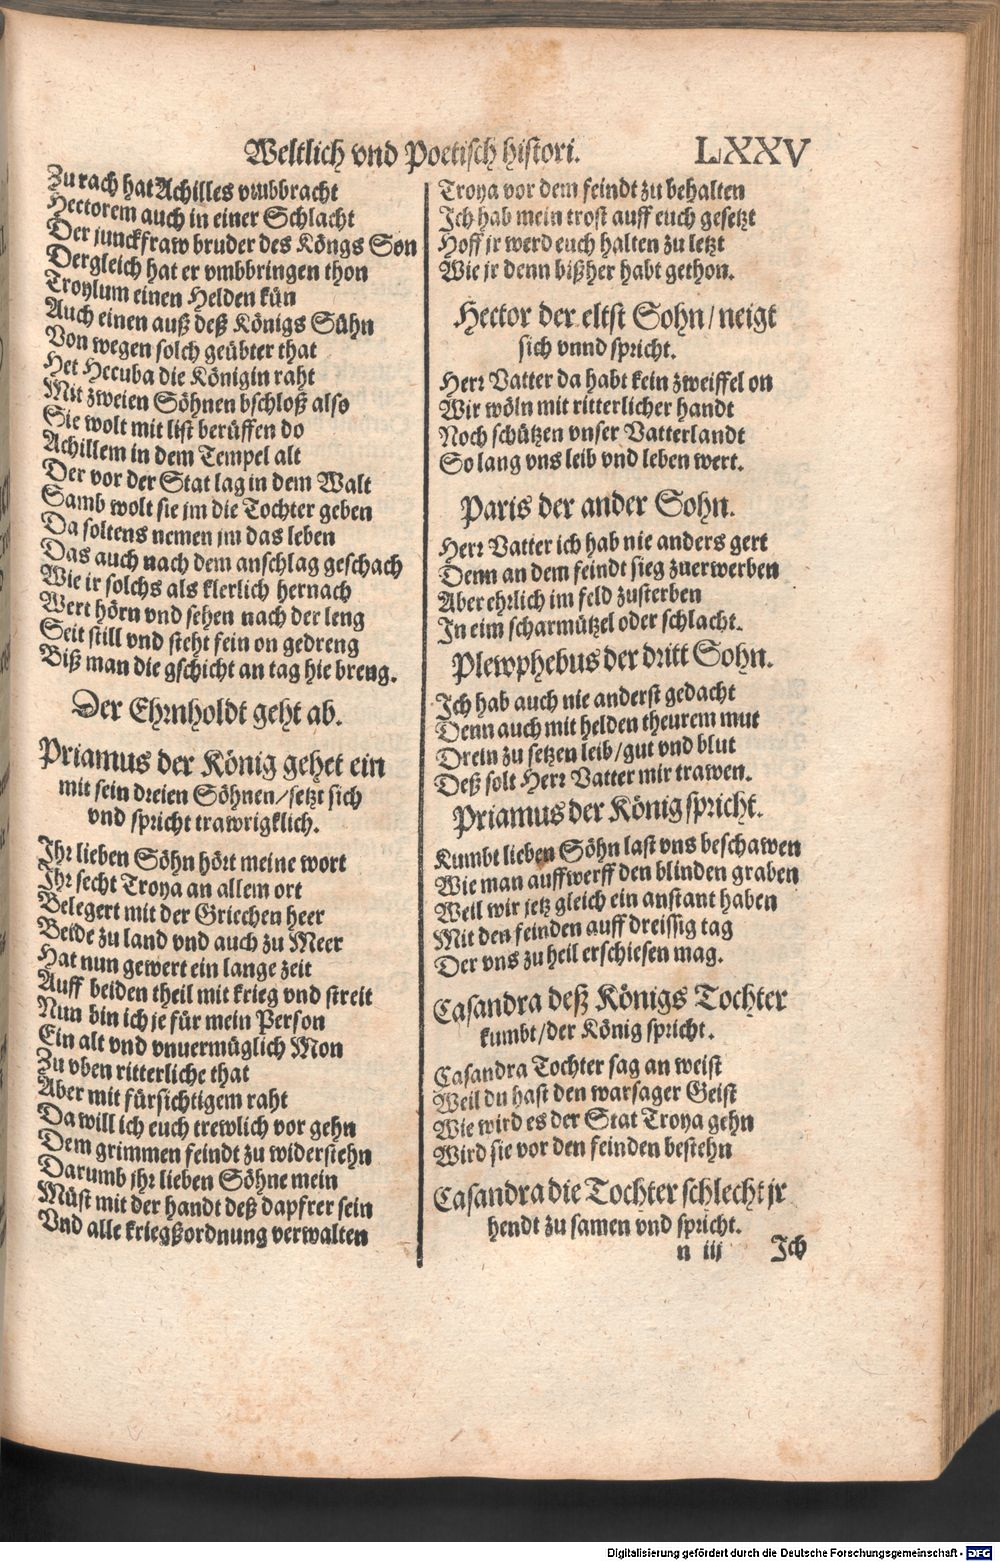 Weltlich vnd Poetisch histori. LXXV
Zu rach hat Achilles vmbbracht
Hectorem auch in einer Schlacht
Der junckfraw bruder des Köngs Son
Dergleich hat er vmbbringen thon
Troylum einen Helden kün
Auch einen auß deß Königs Sühn
Von wegen solch geübter that
Het Hecuba die Königin raht
Mit zweien Söhnen bschloß also
Sie wolt mit list berüffen do
Achillem in dem Tempel alt
Der vor der Stat lag in dem Walt
Samb wolt sie jm die Tochter geben
Da soltens nemen jm das leben
Das auch nach dem anschlag geschach
Wie ir solchs als klerlich hernach
Wert hörn vnd sehen nach der leng
Seit still vnd steht fein on gedreng
Biß man die gschicht an tag hie breng.
Der Ehrnholdt geht ab.
Priamus der König gehet ein
mit sein dreien Söhnen/setzt sich
vnd spricht trawrigklich.
Ihr lieben Söhn hört meine wort
Ihr secht Troya an allem ort
Belegert mit der Griechen heer
Beide zu land vnd auch zu Meer
Hat nun gewert ein lange zeit
Auff beiden theil mit krieg vnd streit
Nun bin ich je für mein Person
Ein alt vnd vnuermüglich Mon
Zu vben ritterliche that
Aber mit fürsichtigem raht
Da will ich euch trewlich vor gehn
Dem grimmen feindt zu widerstehn
Darumb jhr lieben Söhne mein
Müst mit der handt deß dapfrer sein
Vnd alle kriegßordnung verwalten
Troya vor dem feindt zu behalten
Ich hab mein trost auff euch gesetzt
Hoff jr werd euch halten zu letzt
Wie jr denn bißher habt gethon.
Hector der eltst Sohn/neigt
sich vnnd spricht.
Herr Vatter da habt kein zweiffel on
Wir wöln mit ritterlicher handt
Noch schützen vnser Vatterlandt
So lang vns leib vnd leben wert.
Paris der ander Sohn.
Herr Vatter ich hab nie anders gert
Denn an dem feindt sieg zuerwerben
Aber ehrlich im feld zusterben
In eim scharmützel oder schlacht.
Plewphebus der dritt Sohn.
Ich hab auch nie anderst gedacht
Denn auch mit helden theurem mut
Drein zu setzen leib/gut vnd blut
Deß solt Herr Vatter mir trawen.
Priamus der König spricht.
Kumbt lieben Söhn last vns beschawen
Wie man auffwerff den blinden graben
Weil wir jetz gleich ein anstant haben
Mit den feinden auff dreissig tag
Der vns zu heil erschiesen mag.
Casandra deß Königs Tochter
kumbt/der König spricht.
Casandra Tochter sag an weist
Weil du hast den warsager Geist
Wie wird es der Stat Troya gehn
Wird sie vor den feinden bestehn
Casandra die Tochter schlecht jr
hendt zu samen vnd spricht.
n iij Ich
Digitalisierung gefördert durch die Deutsche Forschungsgemeinschaft - DFG